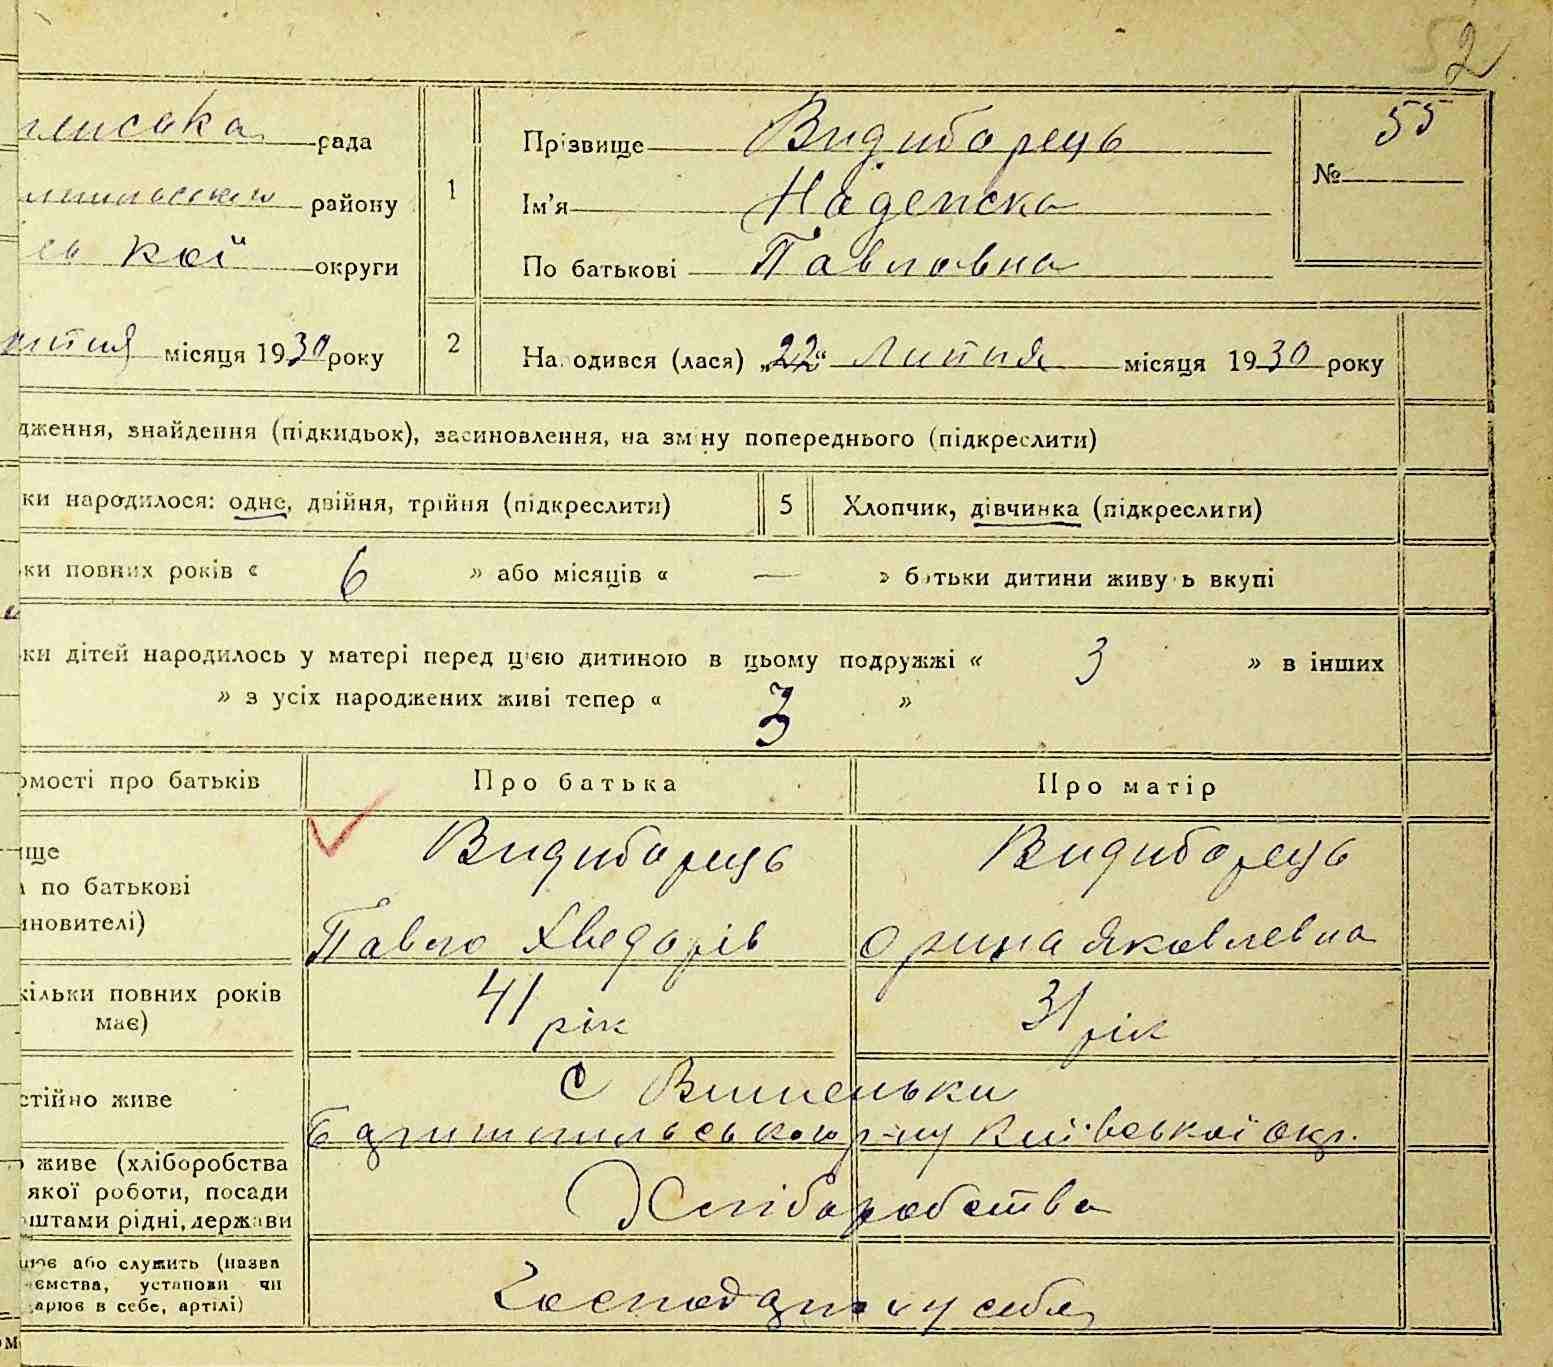 2
рада
1
Прізвище Видиборець
№ 55
району
Ім'я Надежда
округи
По батькові Павловна
місяця 1930 року
2
Народився (лася) „22“ Липня місяця 1930 року
дження, знайдення (підкидьок), засиновлення, на зміну попереднього (підкреслити)
ки народилося: одне, двійня, трійня (підкреслити)
5
Хлопчик, дівчинка (підкреслити)
ки повних років « 6 » або місяців « — » батьки дитини живуть вкупі
ки дітей народилось у матері перед цією дитиною в цьому подружжі « 3 » в інших
» з усіх народжених живі тепер « 3 »
омості про батьків
Про батька
Про матір
ище
по батькові
иновителі)
Видиборець
Павло Хведорів
Видиборець
Орина Яковлевна
кільки повних років
має)
41 рік
31 рік
стійно живе
с Вишеньки
р-ну Київської окр.
живе (хліборобства
якої роботи, посади
оштами рідні, держави
Хліборобства
або служить (назва
ємства, установи чи
арює в себе, артілі)
у себе